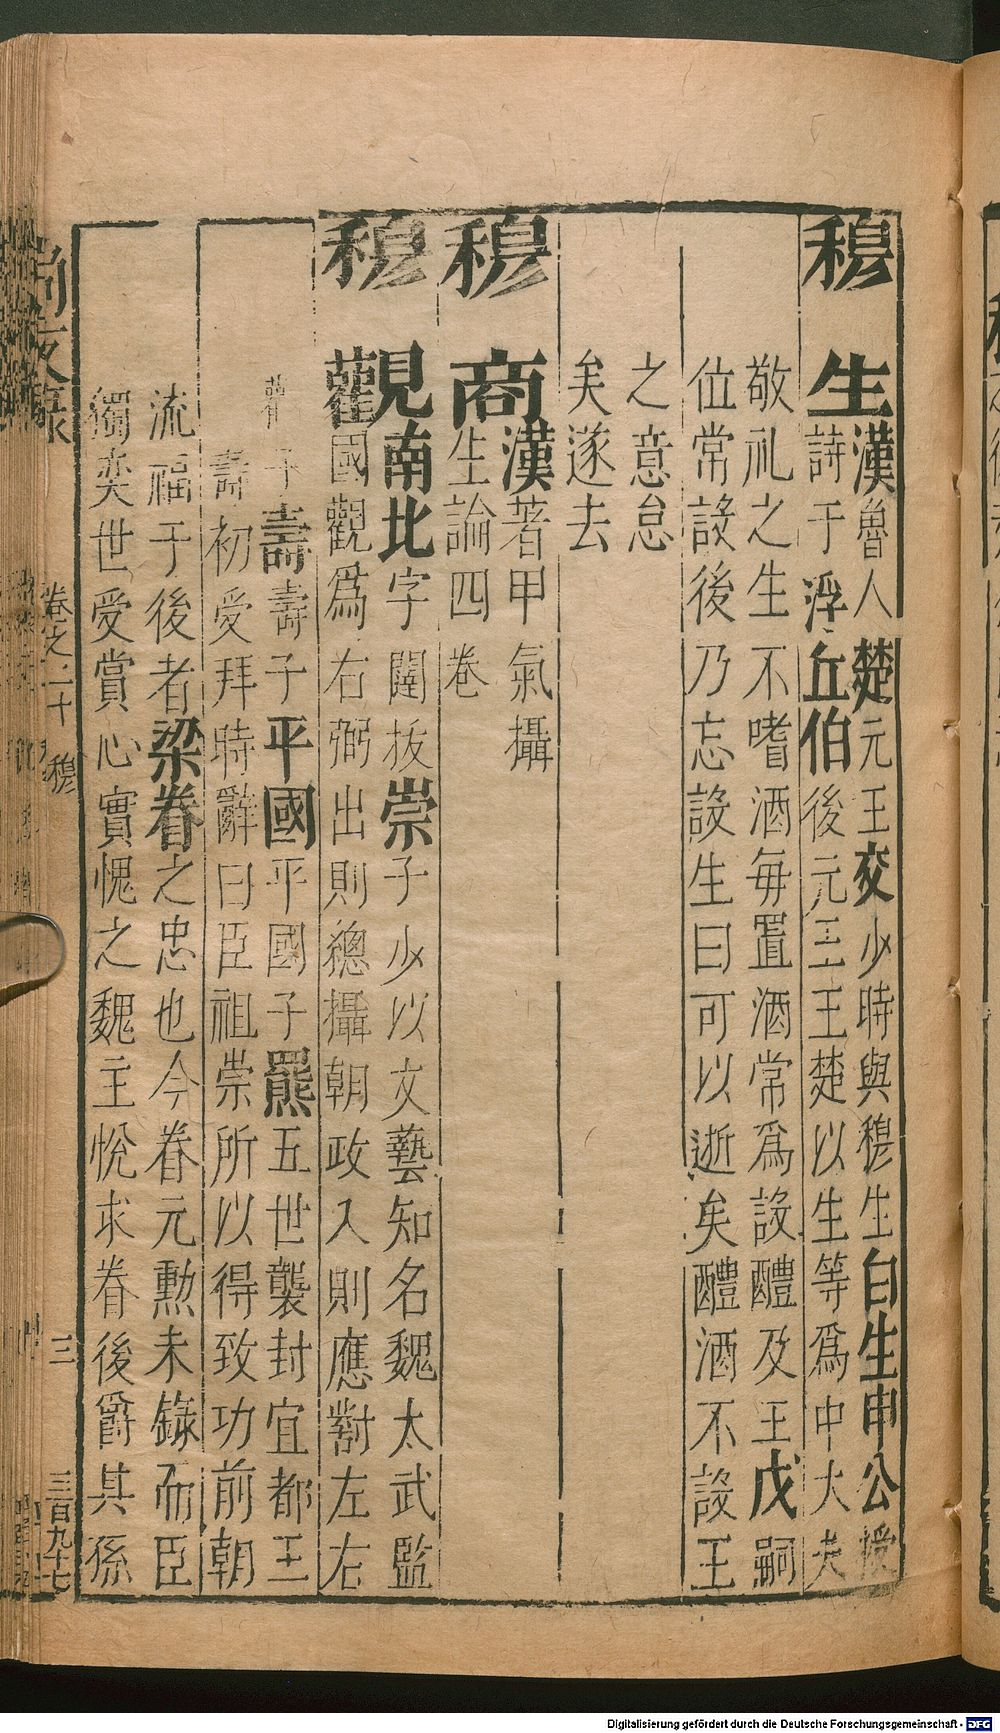 穆　生漢魯人楚元王交少時與穆生白生申公授
詩于浮丘伯後元王王楚以生等爲中大夫
敬礼之生不嗜酒每置酒常爲設醴及王戊嗣
位常設後乃忘設生曰可以逝矣醴酒不設王
之意怠
矣遂去
穆　商漢著甲氣攝
生論四巻
穆　觀南北字闥拔崇子少以文藝知名魏太武監
國觀爲右弼出則總攝朝政入則應對左右
平壽壽子平國平國子羆五世襲封宜都王
壽初受拜時辭曰臣祖崇所以得致功前朝
流福于後者梁眷之忠也今眷元勲未錄而臣
獨奕世受賞心實愧之魏主悅求眷後爵其孫
尚友錄
卷之二十
穆
三
三百九十七
Digitalisierung gefördert durch die Deutsche Forschungsgemeinschaft - DFG